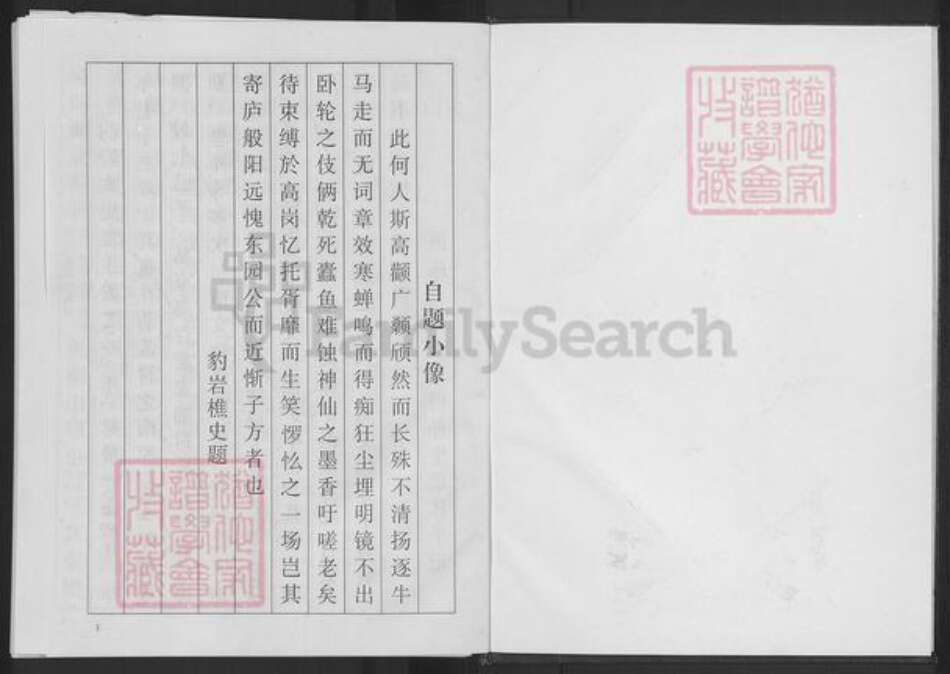 自题小像
此何人斯高颧广颡颀然而长殊不清扬逐牛
马走而无词章效寒蝉鸣而得痴狂尘埋明镜不出
卧轮之伎俩乾死蠹鱼难蚀神仙之墨香吁嗟老矣
待束缚於高岗忆托胥靡而生笑愣忪之一场岂其
寄庐般阳远愧东园公而近惭子方者也
豹岩樵史题
FamilySearch
譜學會
收藏
譜學會
收藏